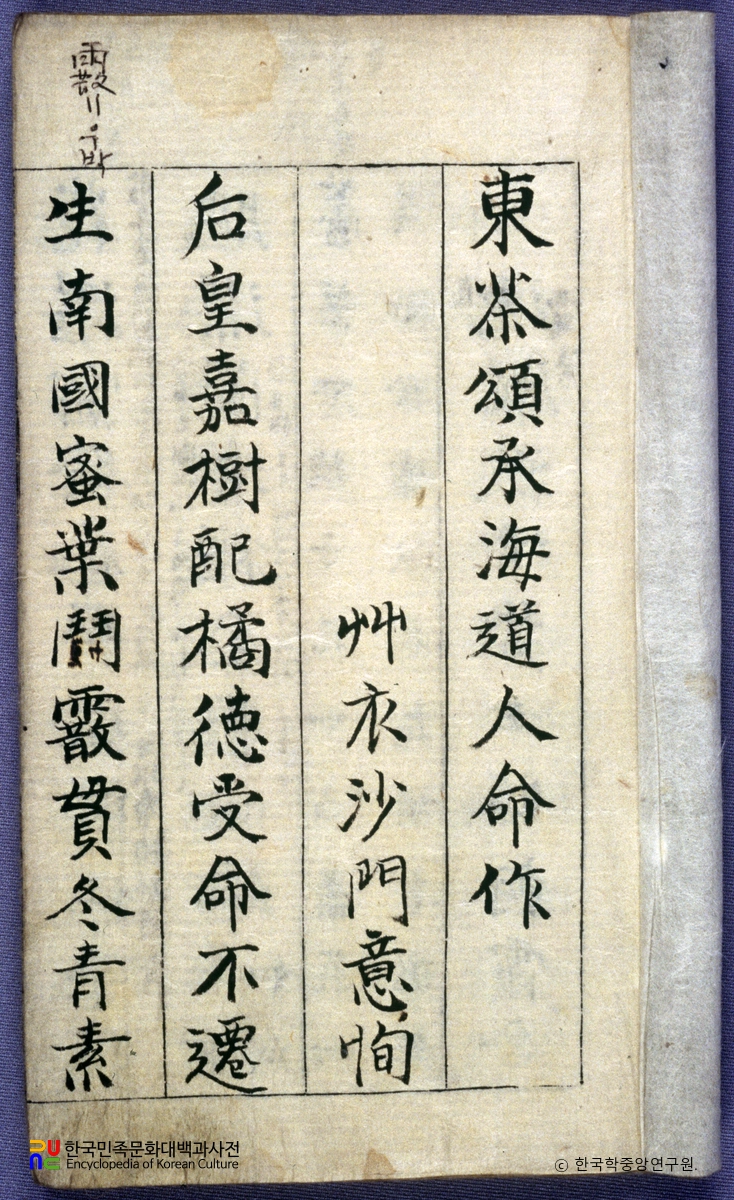 東茶頌承海道人命作
艸衣沙門意恂
后皇嘉樹配橘徳受命不遷
生南國蜜葉鬪霰貫冬青素
霰〃우박
한국민족문화대백과사전
Encyclopedia of Korean Culture
© 한국학중앙연구원.